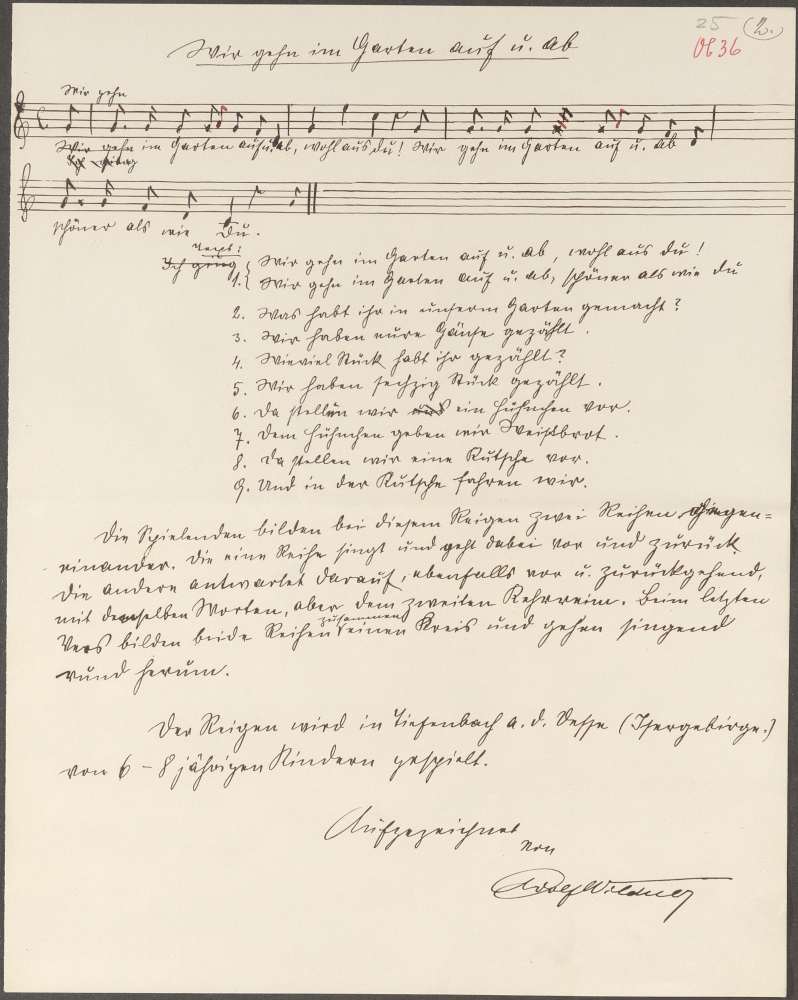 25 (2.)
Ob 36
Wir gehn im Garten auf u. ab
Wir gehn
Wir gehn im Garten auf u. ab, wohl aus du! Wir gehn im Garten auf u. ab
schöner als wie Du.
Text:
Ich ging
1. Wir gehn im Garten auf u. ab, wohl aus du!
Wir gehn im Garten auf u. ab, schöner als wie du
2. Was habt ihr in unserm Garten gemacht?
3. Wir haben eure Gänse gezählt.
4. Wieviel Stück habt ihr gezählt?
5. Wir haben sechzig Stück gezählt.
6. Da stellen wir uns ein Hühnchen vor.
7. Dem Hühnchen geben wir Weißbrot.
8. Da stellen wir eine Kutsche vor.
9. Und in der Kutsche fahren wir.
Die Spielenden bilden bei diesem Reigen zwei Reihen gegen=
einander. Die eine Reihe singt und geht dabei vor und zurück.
Die andere antwortet darauf, ebenfalls vor u. zurückgehend,
mit denselben Worten, aber dem zweiten Kehrreim. Beim letzten
Vers bilden beide Reihen zusammen einen Kreis und gehen singend
rund herum.
Der Reigen wird in Tiefenbach a. d. Desse (Isergebirge.)
von 6 - 8 jährigen Kindern gespielt.
Aufgezeichnet
von
Adolf Wildner